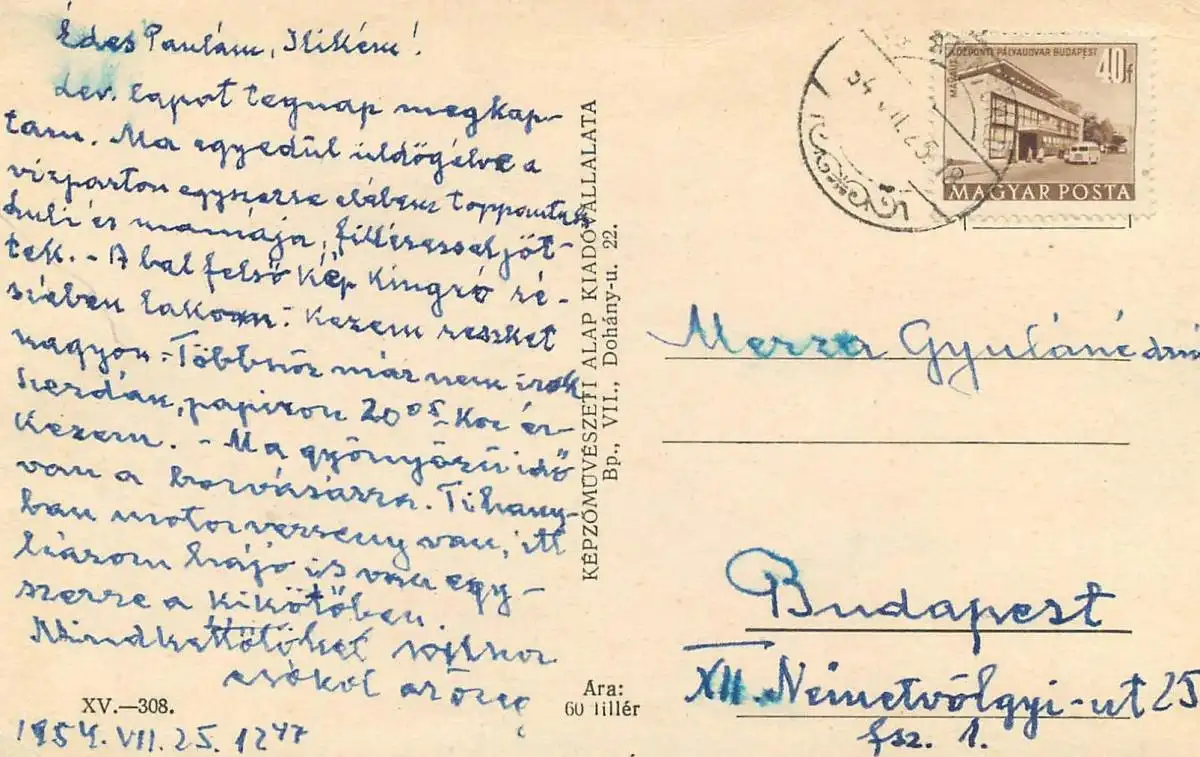 Édes Paulám, Ilikém!
Lev. lapot tegnap megkap-
tam. Ma egyedül üldögélve a
vízparton egyszerre elébem toppantak
Luli és mamája, filléressel jöt-
tek. - A bal felső kép Kingró ré-
szében lakom. Kezem reszket
nagyon. - Többször már nem írok
Szerdán, papíron 20 05 -kor ér-
kezem. - Ma gyönyörű idő
van a borvásárra. Tihany-
ban motorverseny van, itt
három hajó is van egy-
szerre a kikötőben.
Mindkettőtöket sokszor
csókol
1954. VII. 25. 12 47
XV.—308.
KÉPZŐMŰVÉSZETI ALAP KIADÓVÁLLALATA
Bp., VII., Dohány-u. 22.
Ára:
60 fillér
KÖZPONTI PÁLYAUDVAR BUDAPEST
40f
MAGYAR POSTA
54 VII. 25
Merza Gyuláné
Budapest
XII. Németvölgyi-út 25
fsz. 1.